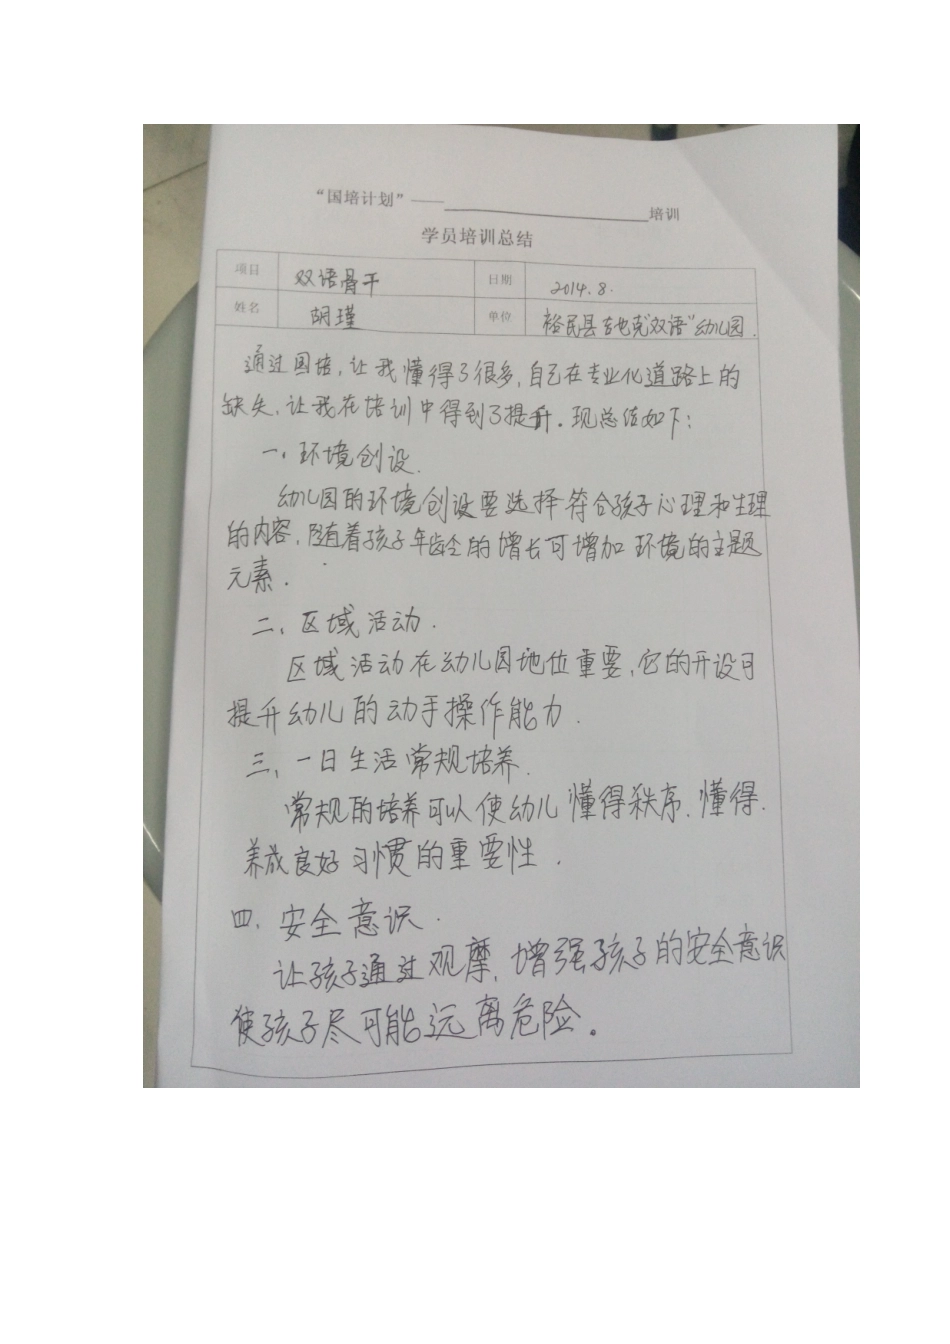 “国培计划”——____________________培训
学员培训总结
项目 双语骨干 日期 2014.8.
姓名 胡瑾 单位 裕民县吉也克“双语”幼儿园.
通过国培,让我懂得了很多,自己在专业化道路上的
缺失,让我在培训中得到了提升。现总结如下:
一、环境创设.
幼儿园的环境创设要选择符合孩子心理和生理
的内容,随着孩子年龄的增长可增加环境的主题
元素.
二、区域活动.
区域活动在幼儿园地位重要,它的开设可
提升幼儿的动手操作能力.
三、一日生活常规培养.
常规的培养可以使幼儿懂得秩序、懂得.
养成良好习惯的重要性.
四、安全意识.
让孩子通过观摩,增强孩子的安全意识
使孩子尽可能远离危险。